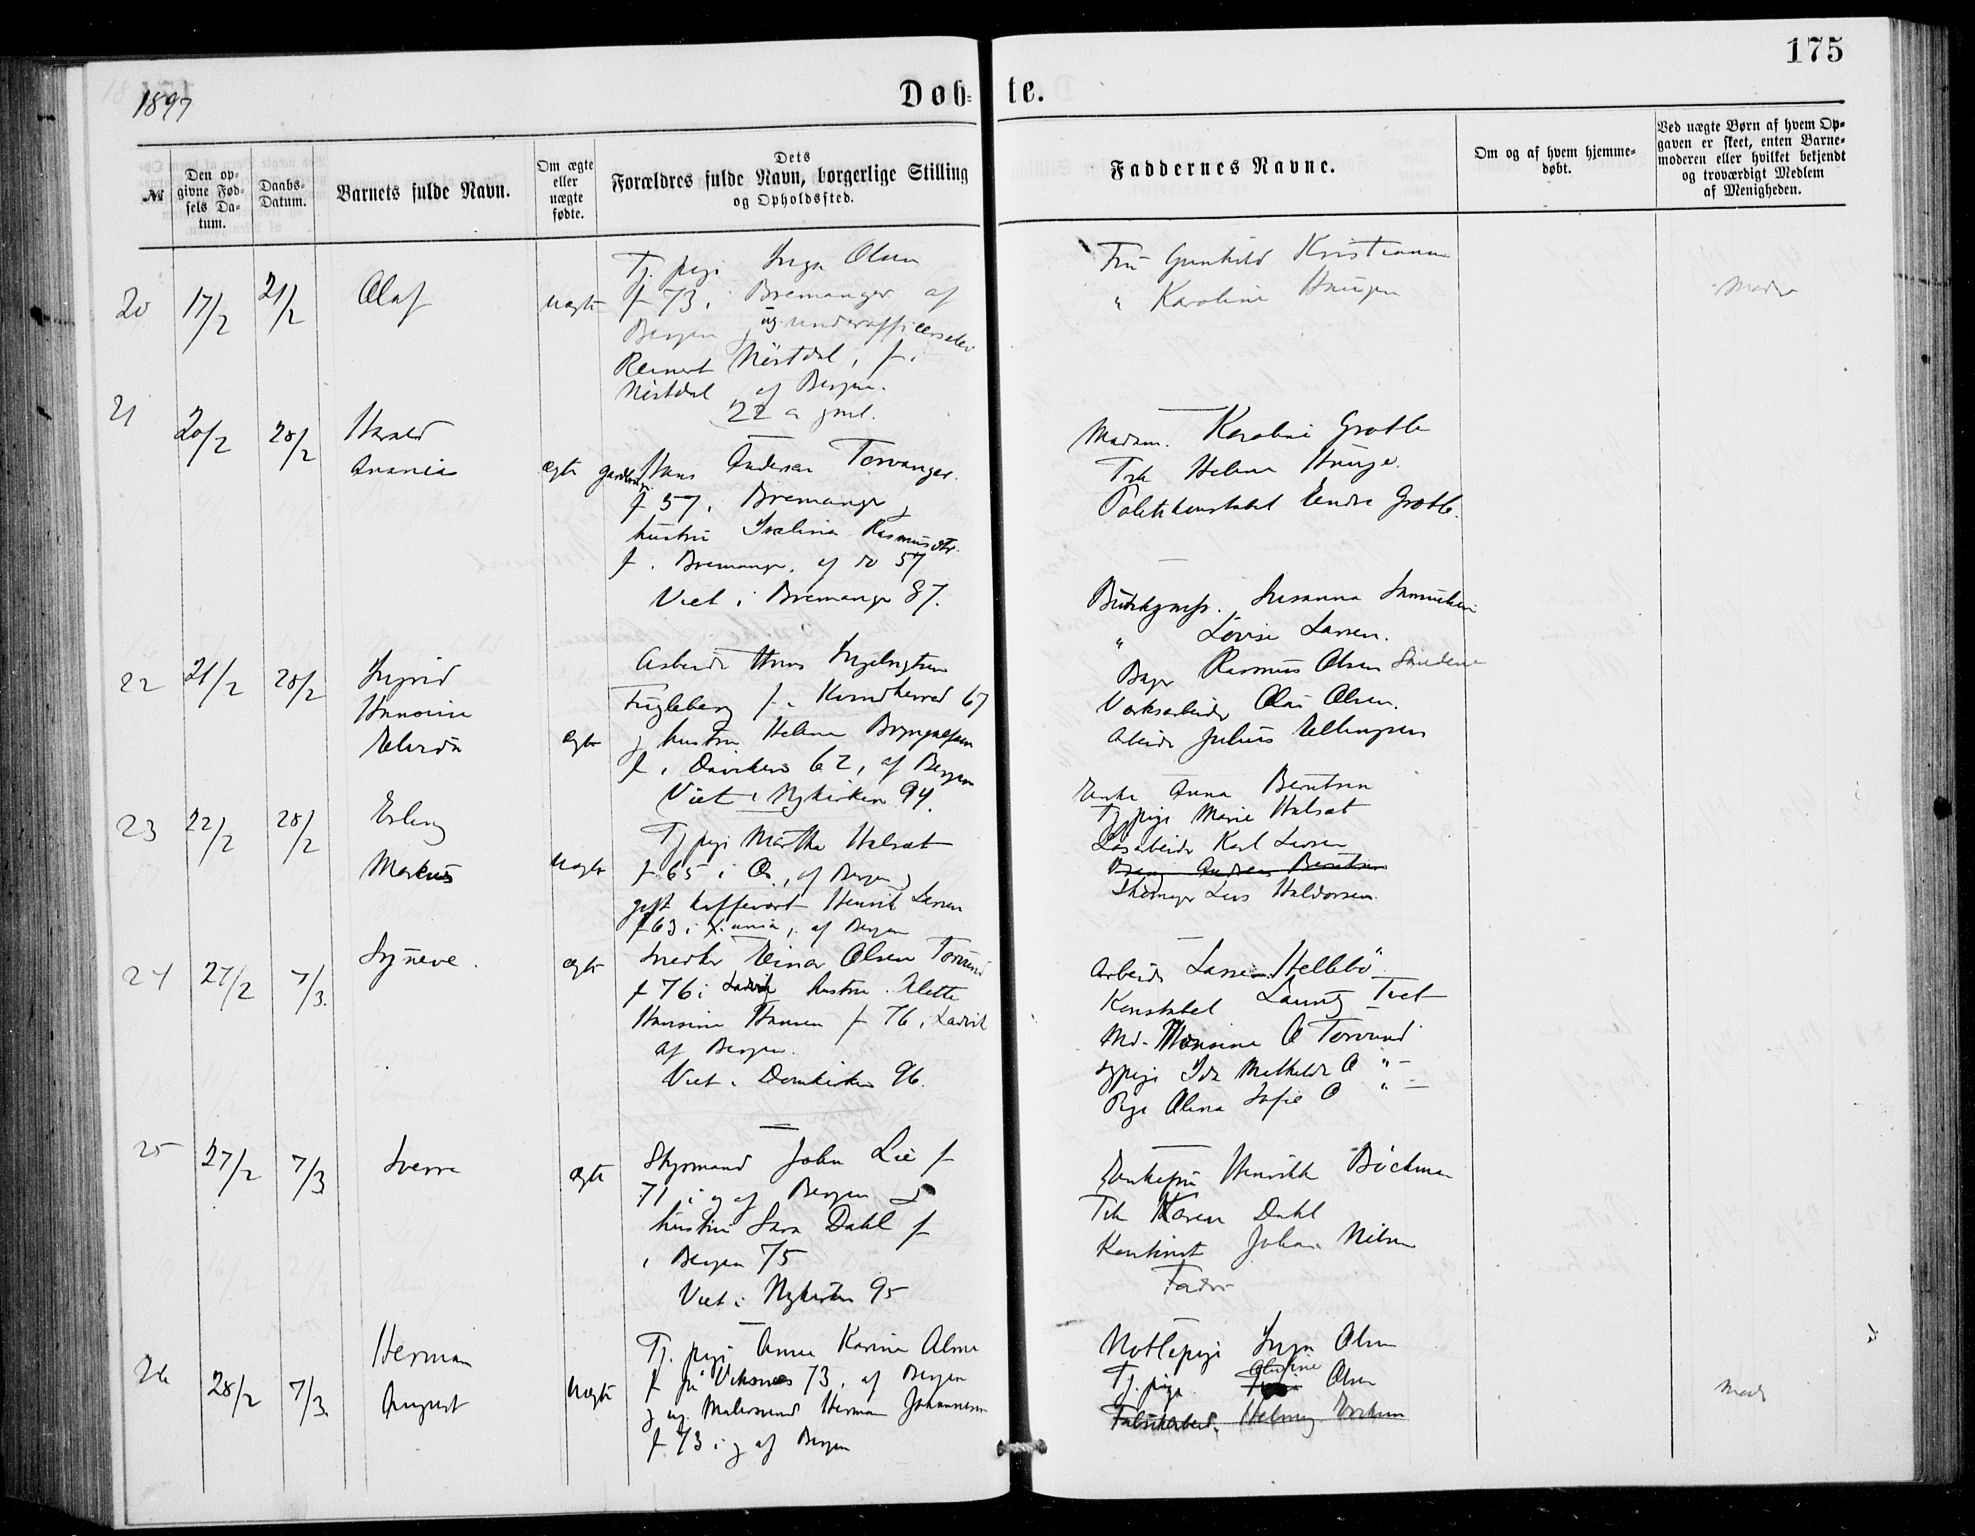 175
1897
Døb-te.
№
Den opgivne Fødsels Datum.
Daabs-Datum.
Barnets fulde Navn.
Om ægte eller uægte fødte.
Dets Forældres fulde Navn, borgerlige Stilling og Opholdssted.
Faddernes Navne.
Om og af hvem hjemmedøbt.
Ved uægte Børn af hvem Opgaven er skeet, enten Barnemoderen eller hvilket bekjendt og troværdigt Medlem af Menigheden.
20 17/2 21/2 Olaf uægte
Tj. pige Inga Olsen
f 73 i Bremanger af
Bergen og underofficerselev
Reinert Nistdal, f i
Nistdal af Bergen.
22 a gml.
Fru Gunhild Kristiansen
" Karoline Haugen
Moder
21 20/2 28/2 Harald
Ananias ægte
Hans Andersen Torvanger
f 57 i Bremanger
hustru Rasmusdtr.
f i Bremanger af do 57
Viet i Bremanger 87.
Madam. Karoline Grotle
Frk Helene Hauge.
Politikonstabel Endre Grotle.
22 21/2 28/2 Ingrid
Hansine
Elvida ægte
Arbeider Hans
Fugleberg f i Kvindherred 67
og hustru Helene
f i Daviken 62, af Bergen
Viet i Nykirken 94.
Susanna Samuelsen
" Lovise Larsen.
Rasmus Olsen
Verksarbeider Olai Olsen.
Arbeider Julius Ellingsen
23 22/2 28/2 Erling
Markus uægte
Tj pige Martha Halsæt
f 65 i Ø, af Bergen
gift kaffevert Henrik Larsen
f 63 i Xiania, af Bergen
Enke Anna Berntsen
Tj pige Marie Halsæt
Løsarbeider Karl Larsen
Andreas Berntsen
Lars Haldorsen
24 27/2 7/3. Syneve. ægte
Snedker Einar Olsen Torvund
f 76 i Ladvik hustru Alette
Hansine Hansen f 76 i Ladvik
af Bergen.
Viet i Domkirken 96.
Arbeider Hellebø
Konstabel Tvet
Md. Hansine O Torvund
Sypige Ida Mathilde O "—
Pige Olina Sofie O "—
25 27/2 7/3 Sverre ægte
Styrmand John Lie f
71 i og af Bergen og
hustru Sara Dahl f
i Bergen 75
Viet i Nykirken 95
Enkefru Henrikke Bøckman
Frk Karen Dahl
Kontorist Johan Nilsen
Fader
26 28/2 7/3. Herman
August uægte
Tj. pige Anna Karine Olsen
f på Viksnes 73, af Bergen
og ug. Malersvend Herman Johannesen
f 73 i og af Bergen
Nottepige Inga Olsen
Tj. pige Olsen
Fabrikarbeid. Helmig
Moder